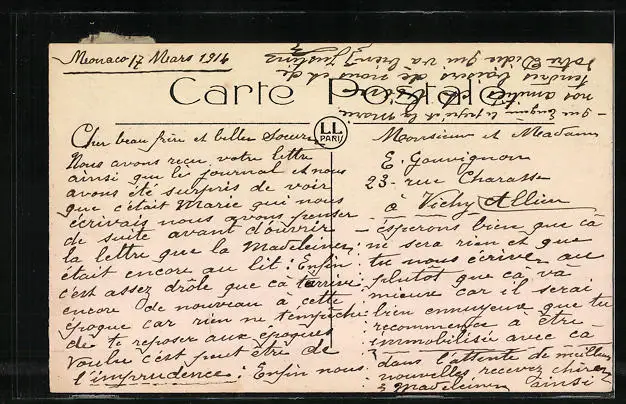 Monaco 17 Mars 1914
Carte Postale
LL
PARIS
Cher beau frère et belle Soeur
Nous avons reçu votre lettre
ainsi que le journal et nous
avons été surpris de voir
que c'était Marie qui nous
écrivais nous avons penser
de suite avant d'ouvrir
la lettre que la Madeleine
était encore au lit : Enfin
c'est assez drôle que ça t'arrive
encore de nouveau à cette
époque car rien ne t'empêche
de te reposer aux époques
voulu c'est peut être de
l'imprudence : Enfin nous
Monsieur et Madame
E. Gouvignon
23 - rue Charasse
à Vichy Allier
espérons bien que ça
ne sera rien et que
tu nous écrive au
plutôt que ça va
mieux car il serai
bien ennuyeux que tu
recommence à être
immobilisée avec ça
dans l'attente de meilleur
nouvelles recevez chiren
Madeleine ainsi
que Eugène le père et la Marie
nos amitiés et
tendres baisers de nous et de
votre Didie qui va bien Justine